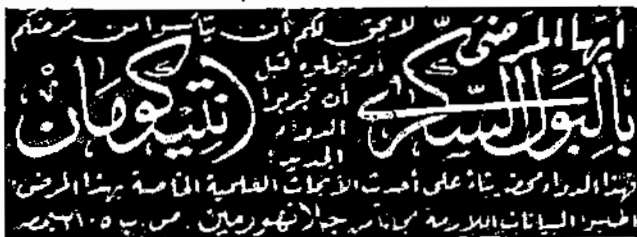 أيها المرضى
بالبول السكري
لا يحق لكم أن تيأسوا من مرضكم
أو تهملوه قبل
أن تجربوا
الدواء
الجديد:
(انتيكومان)
فهذا الدواء محضر بناء على أحدث الأبحاث العلمية الخاصة بهذا المرض
اطلبوا البيانات اللازمة مجانا من جلانهورمين . ص . ب ٢١٠٥ بمصر